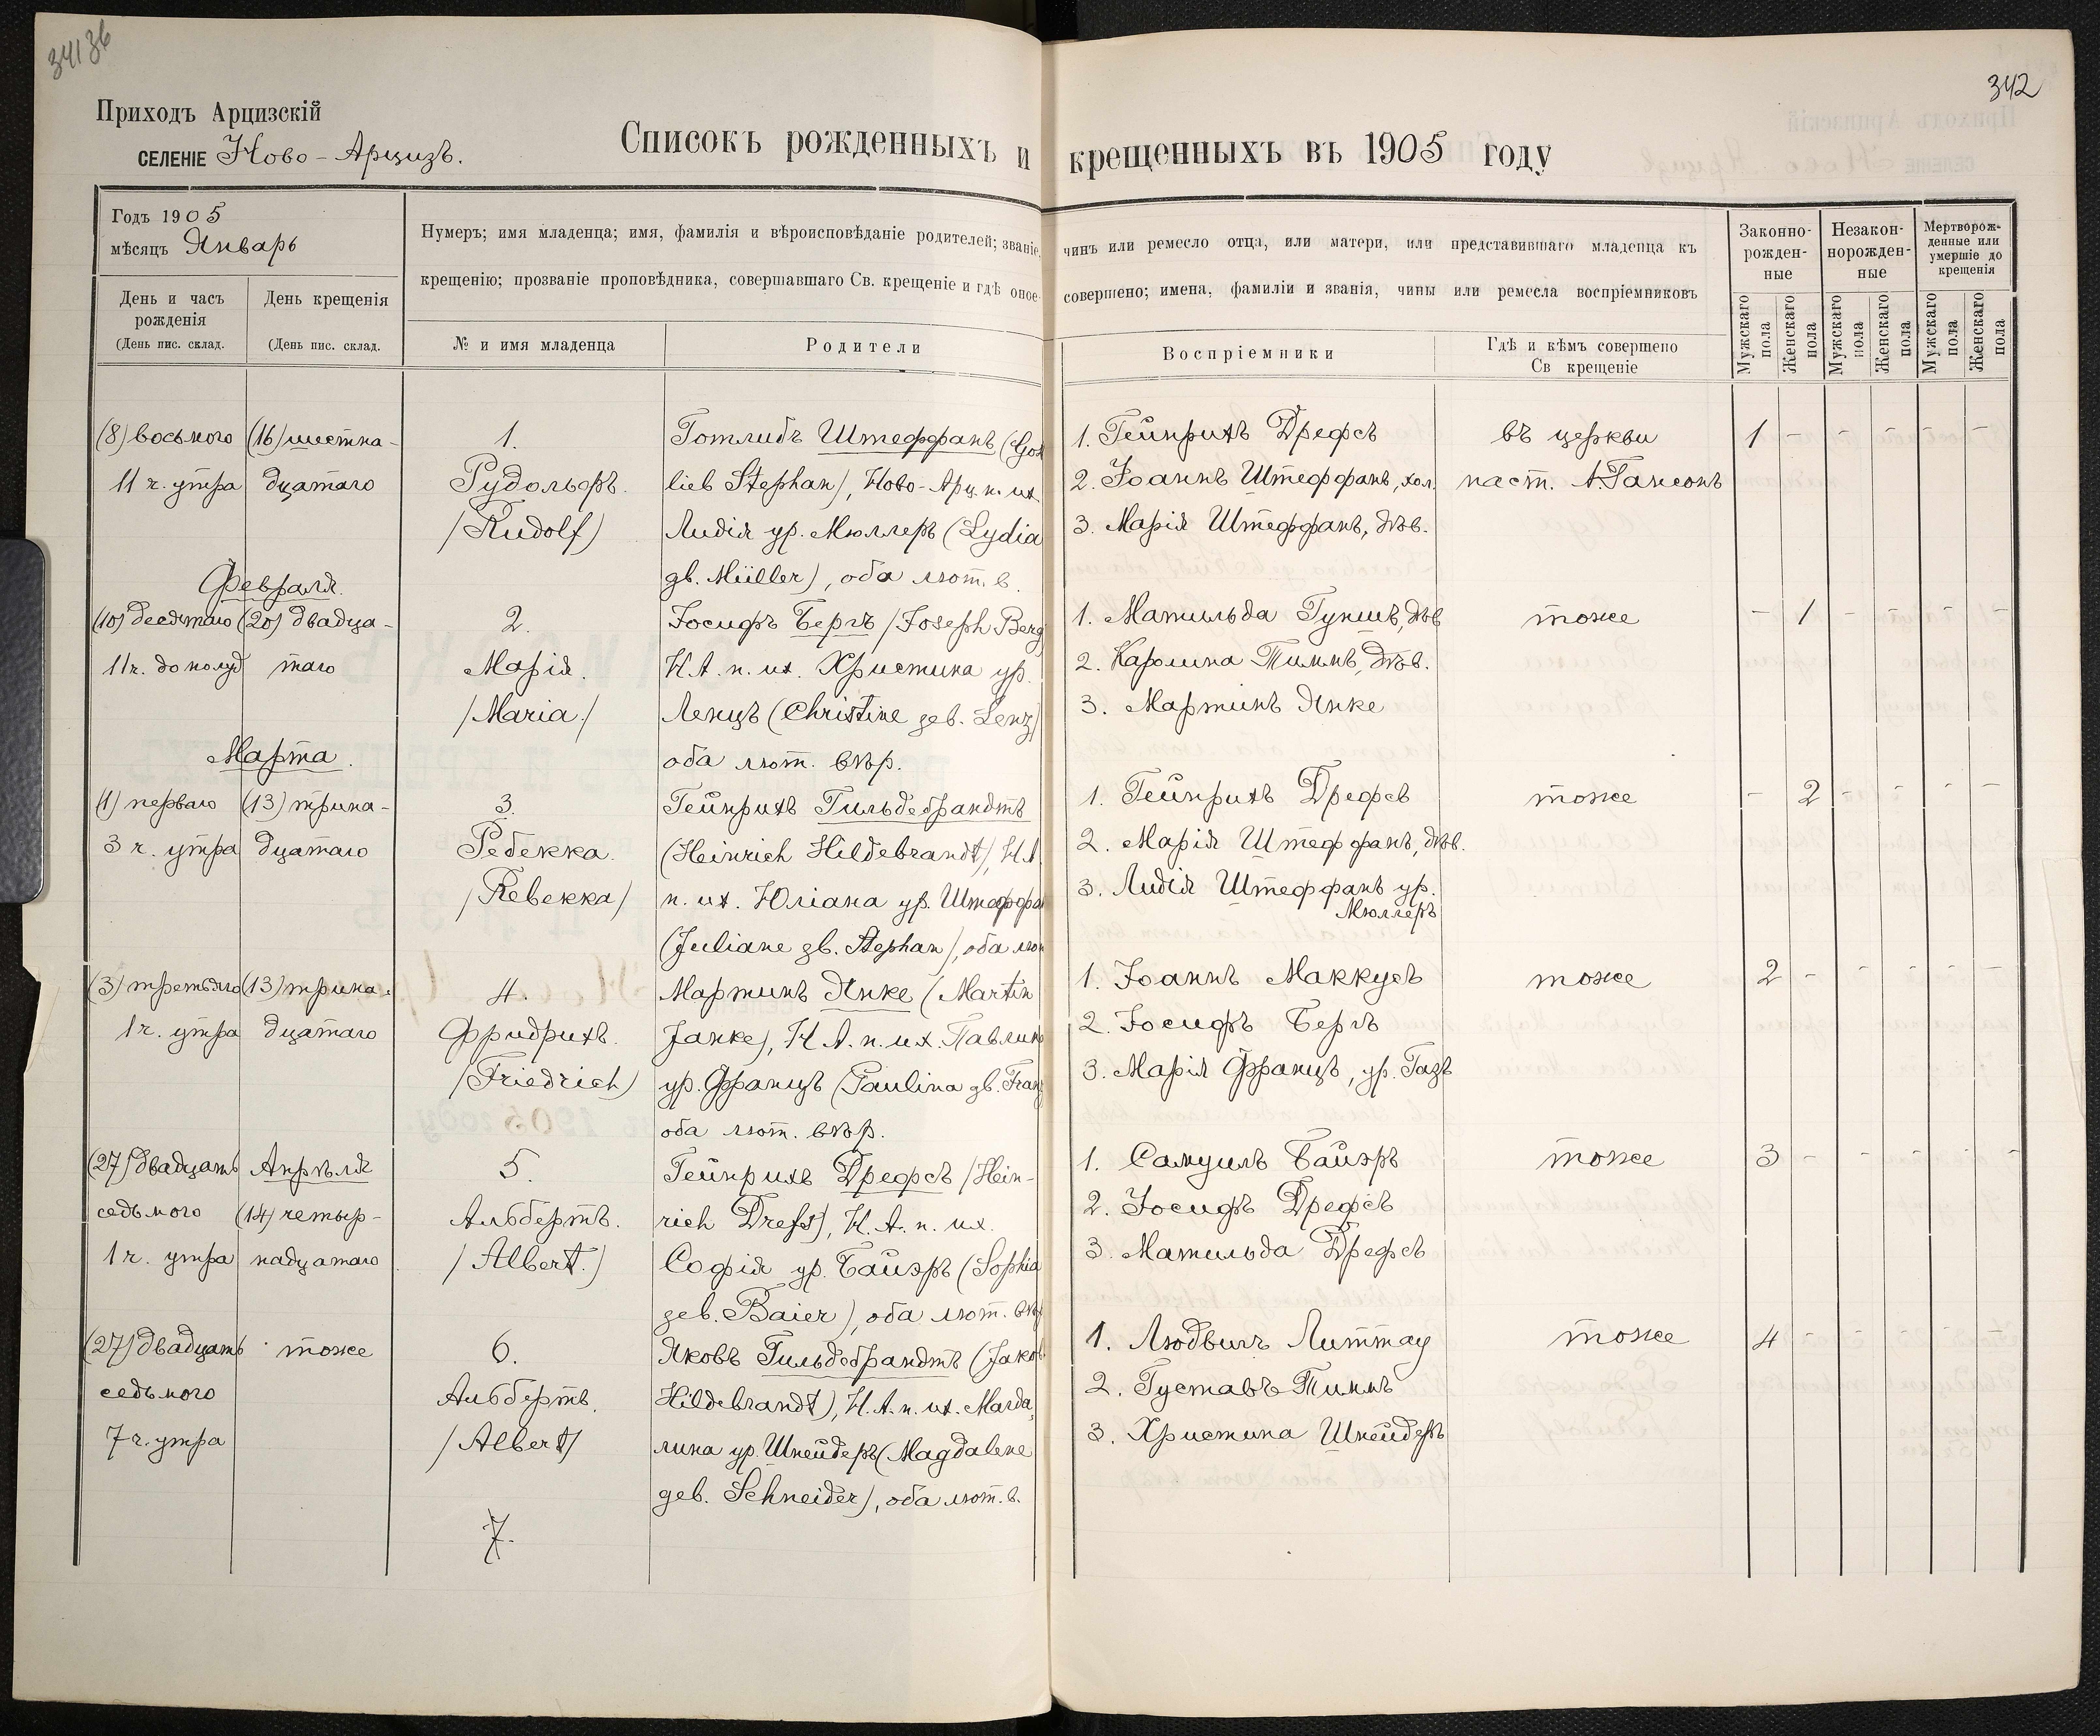 34136
342
Приходъ Арцизскій
СЕЛЕНІЕ Ново-Арцизъ.
Списокъ рожденныхъ и крещенныхъ въ 1905 году
Годъ 1905
мѣсяцъ Январь
День и часъ рожденія
(День пис. склад.
День крещенія
(День пис. склад.
Нумеръ; имя младенца; имя, фамилія и вѣроисповѣданіе родителей; званіе, чинъ или ремесло отца, или матери, или представившаго младенца къ
крещенію; прозваніе проповѣдника, совершавшаго Св. крещеніе и гдѣ оное совершено; имена, фамиліи и званія, чины или ремесла воспріемниковъ
№ и имя младенца
Родители
Воспріемники
Гдѣ и кѣмъ совершено
Св крещеніе
Законно-
рожден-
ные
Незакон-
норожден-
ные
Мертворож-
денные или
умершіе до
крещенія
Мужскаго пола
Женскаго пола
Мужскаго пола
Женскаго пола
Мужскаго пола
Женскаго пола
(8) восьмого
11 ч. утра
(16) шестна-
дцатаго
1.
Рудольфъ.
/Rudolf)
Готлибъ Штеффанъ (Got
lieb Stephan), Ново-Арц. п. их.
Лидія ур. Мюллеръ (Lydia
gb. Müller), оба лют. в.
1. Гейнрихъ Дрефсъ
2. Іоаннъ Штеффанъ, хол.
3. Марія Штеффанъ, дѣв.
въ церкви
паст. А. Гансонъ
1 - - - - -
Февраля.
(10) десятаго
11 ч. до полуд
(20) двадца-
таго
2.
Марія.
/Maria./
Іосифъ Бергъ /Joseph Berg
Н.А. п. их. Христина ур.
Ленцъ (Christine geb. Lenz)
оба лют. вѣр.
1. Матильда Гукишъ, дѣв
2. Каролина Тиммъ, дѣв.
3. Мартинъ Янке
тоже
- 1 - - - -
Марта.
(1) перваго
3 ч. утра
(13) трина-
дцатаго
3.
Ребекка.
/Rebekka/
Гейнрихъ Гильдебрандтъ
(Heinrich Hildebrandt), Н.А.
п. их. Юліана ур. Штеффа
(Juliane gb. Stephan), оба лют
1. Гейнрихъ Дрефсъ
2. Марія Штеффанъ, дѣв.
3. Лидія Штеффанъ ур.
Мюллеръ
тоже
- 2 - - - -
(3) третьяго
1 ч. утра
(13) трина-
дцатаго
4.
Фридрихъ.
/Friedrich)
Мартинъ Янке (Martin
Janke), Н.А. п. их. Павлина
ур. Францъ (Paulina gb. Franz
оба лют. вѣр.
1. Іоаннъ Маккусъ
2. Іосифъ Бергъ
3. Марія Францъ, ур. Газъ
тоже
2 - - - - -
(27) двадцать
седьмого
1 ч. утра
Апрѣля
(14) четыр-
надцатаго
5.
Альбертъ.
/Albert.)
Гейнрихъ Дрефсъ /Hein-
rich Drefs), Н.А. п. их.
Софія ур. Байэръ (Sophia
geb. Baier), оба лют. вѣр
1. Самуилъ Байэръ
2. Іосифъ Дрефсъ
3. Матильда Дрефсъ
тоже
3 - - - - -
(27) двадцать
седьмого
7 ч. утра
тоже
6.
Альбертъ.
/Albert/
Яковъ Гильдебрандтъ (Jakob
Hildebrandt), Н.А. п. их. Магда,
лина ур. Шнейдеръ (Magdalene
geb. Schneider), оба лют. в.
1. Людвигъ Литтау
2. Густавъ Тиммъ
3. Христина Шнейдеръ
тоже
4 - - - - -
7.